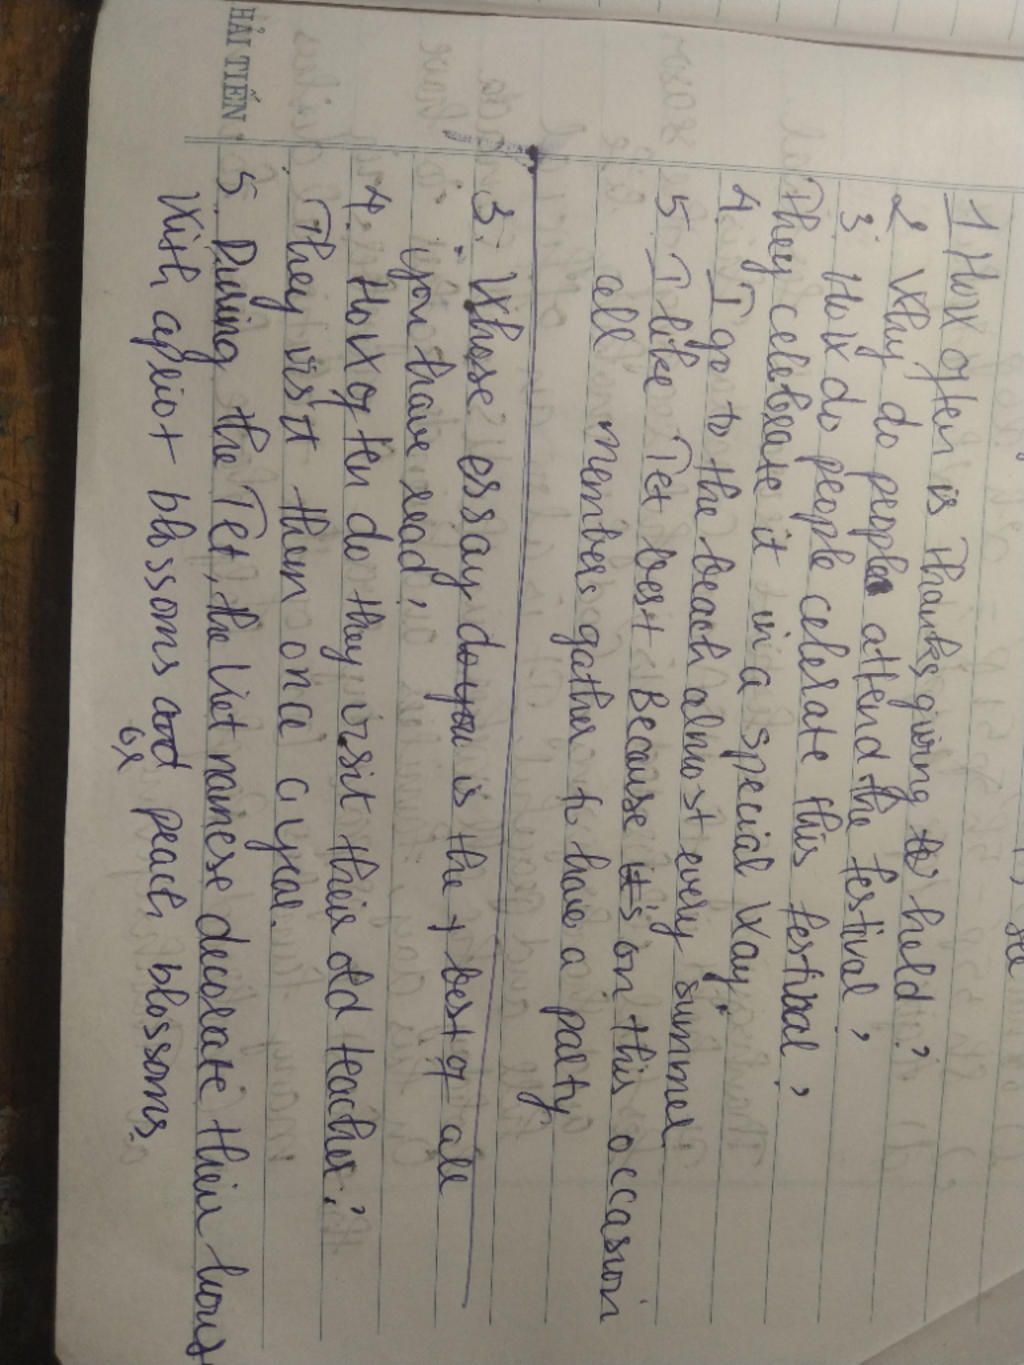 1 How often is Thanksgiving to held?
2 Why do people attend the festival?
3. How do people celerate this festival?
They celebrate it in a special way.
4. I go to the beach almost every summer
5. I like Tet best Because it's on this occasion
all members gather to have a party
3. Whose essay do you is the, best of all
you have read?
4. How often do they visit their old teacher?
They visit them once a year.
5. During the Tet, the Vietnamese decorate their hous
With apriot blossoms and peach blossoms.
or
HẢI TIẾN